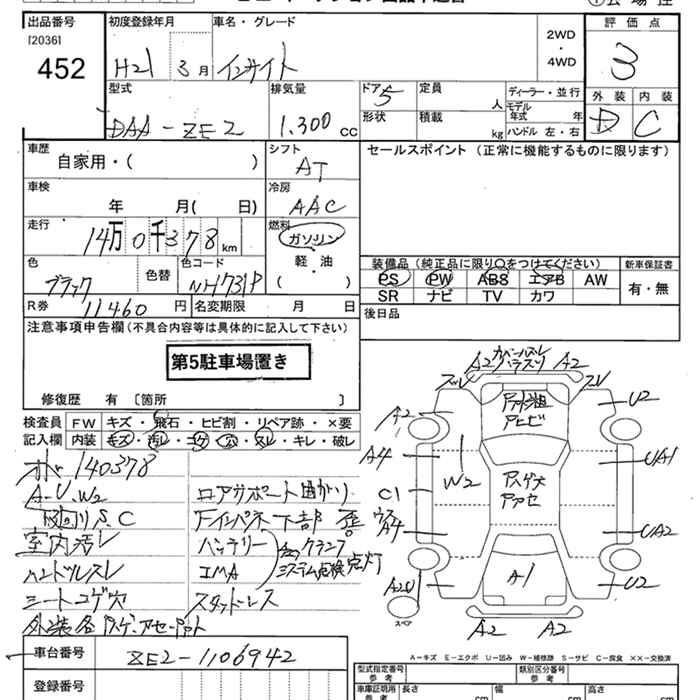 出品番号 初度登録年月 車名・グレード 評価点
[2036]
452
H21 3月 インサイト
2WD
・
4WD
3
型式 排気量 ドア 5 定員 人 ディーラー・並行 外装 内装
モデル年式 年
DAA-ZE2 1.300cc 形状 積載 kg ハンドル 左・右 D C
車歴 自家用・( ) シフト AT
セールスポイント (正常に機能するものに限ります)
車検 年 月( 日) 冷房 AAC
走行 14万0千378km 燃料 ガソリン
軽・油
( )
色 ブラック 色替 色コード NH731P
装備品(純正品に限り○をつけてください) 新車保証書
PS PW ABS エアB AW 有・無
SR ナビ TV カワ
R券 11460円 名変期限 月 日
後日品
注意事項申告欄(不具合内容等は具体的に記入して下さい)
第5駐車場置き
修復歴 有 〔箇所 〕
検査員 FW キズ・飛石・ヒビ割・リペア跡・×要
記入欄 内装 キズ・汚レ・コゲ・穴・スレ・キレ・破レ
140378
A-U.W2 ロアサポート曲がり
S.C 下部
室内汚レ バッテリー
ハンドルスレ IMA システム点検 点灯
シートコゲ穴 スタッドレス
A2 A2
A2 U2
A4 W2 UA1
C1
A4 UA2
A1 U2
スペア
A2 A2
A-キズ E-エクボ U-凹み W-補修跡 S-サビ C-腐食 ××-交換済
車台番号 ZE2-1106942
登録番号
型式指定番号 類別区分番号
参考 参考
車庫証明用 長さ 幅 高さ
参考 cm cm cm